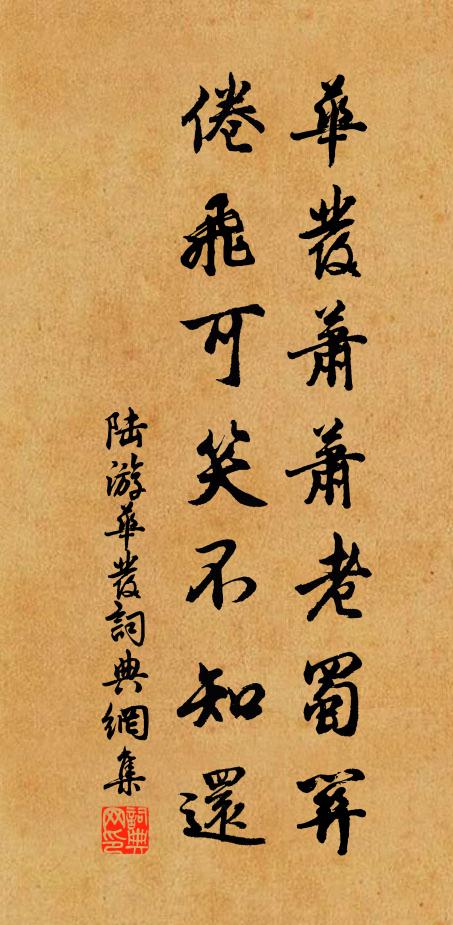 華發蕭蕭老蜀關
倦飛可笑不知還
陸游華發詞典網集
詞典
网印